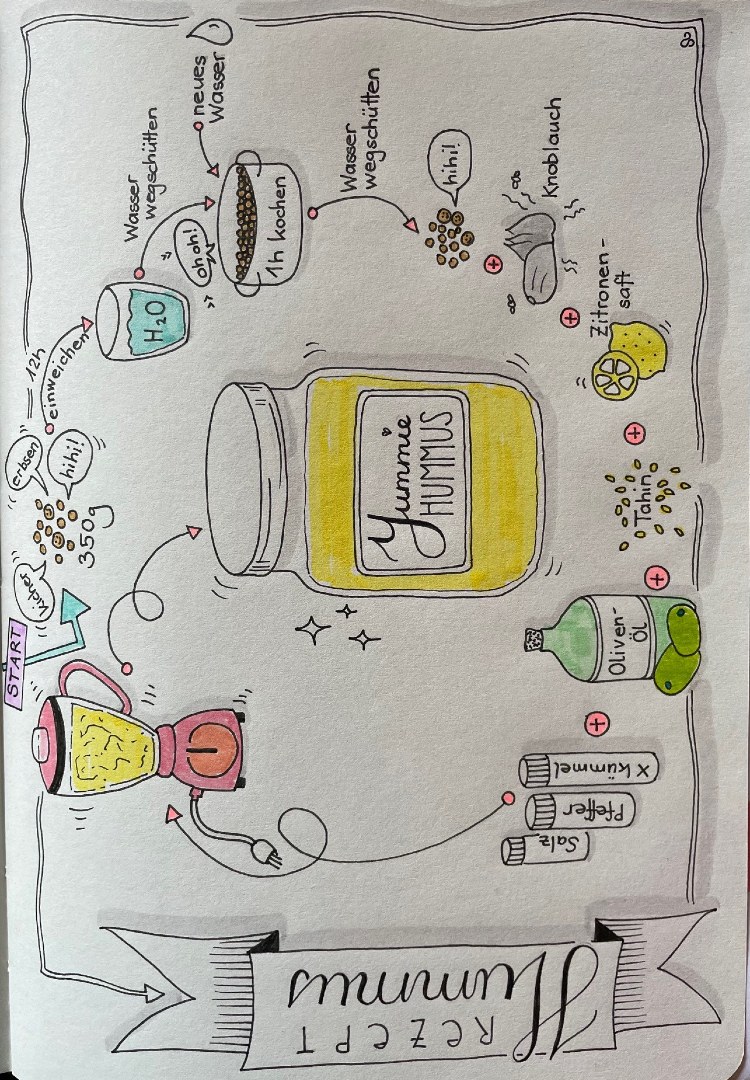 REZEPT
Hummus
START
350g
kicher
erbsen
hihi!!
12h
einweichen
H₂O
Wasser
wegschütten
neues
Wasser
ohoh!
1h kochen
Wasser
wegschütten
hihi!
+
Knoblauch
+
Zitronen-
saft
+
Tahin
+
Oliven-
Öl
+
X kümmel
Pfeffer
Salz
Yummie
HUMMUS